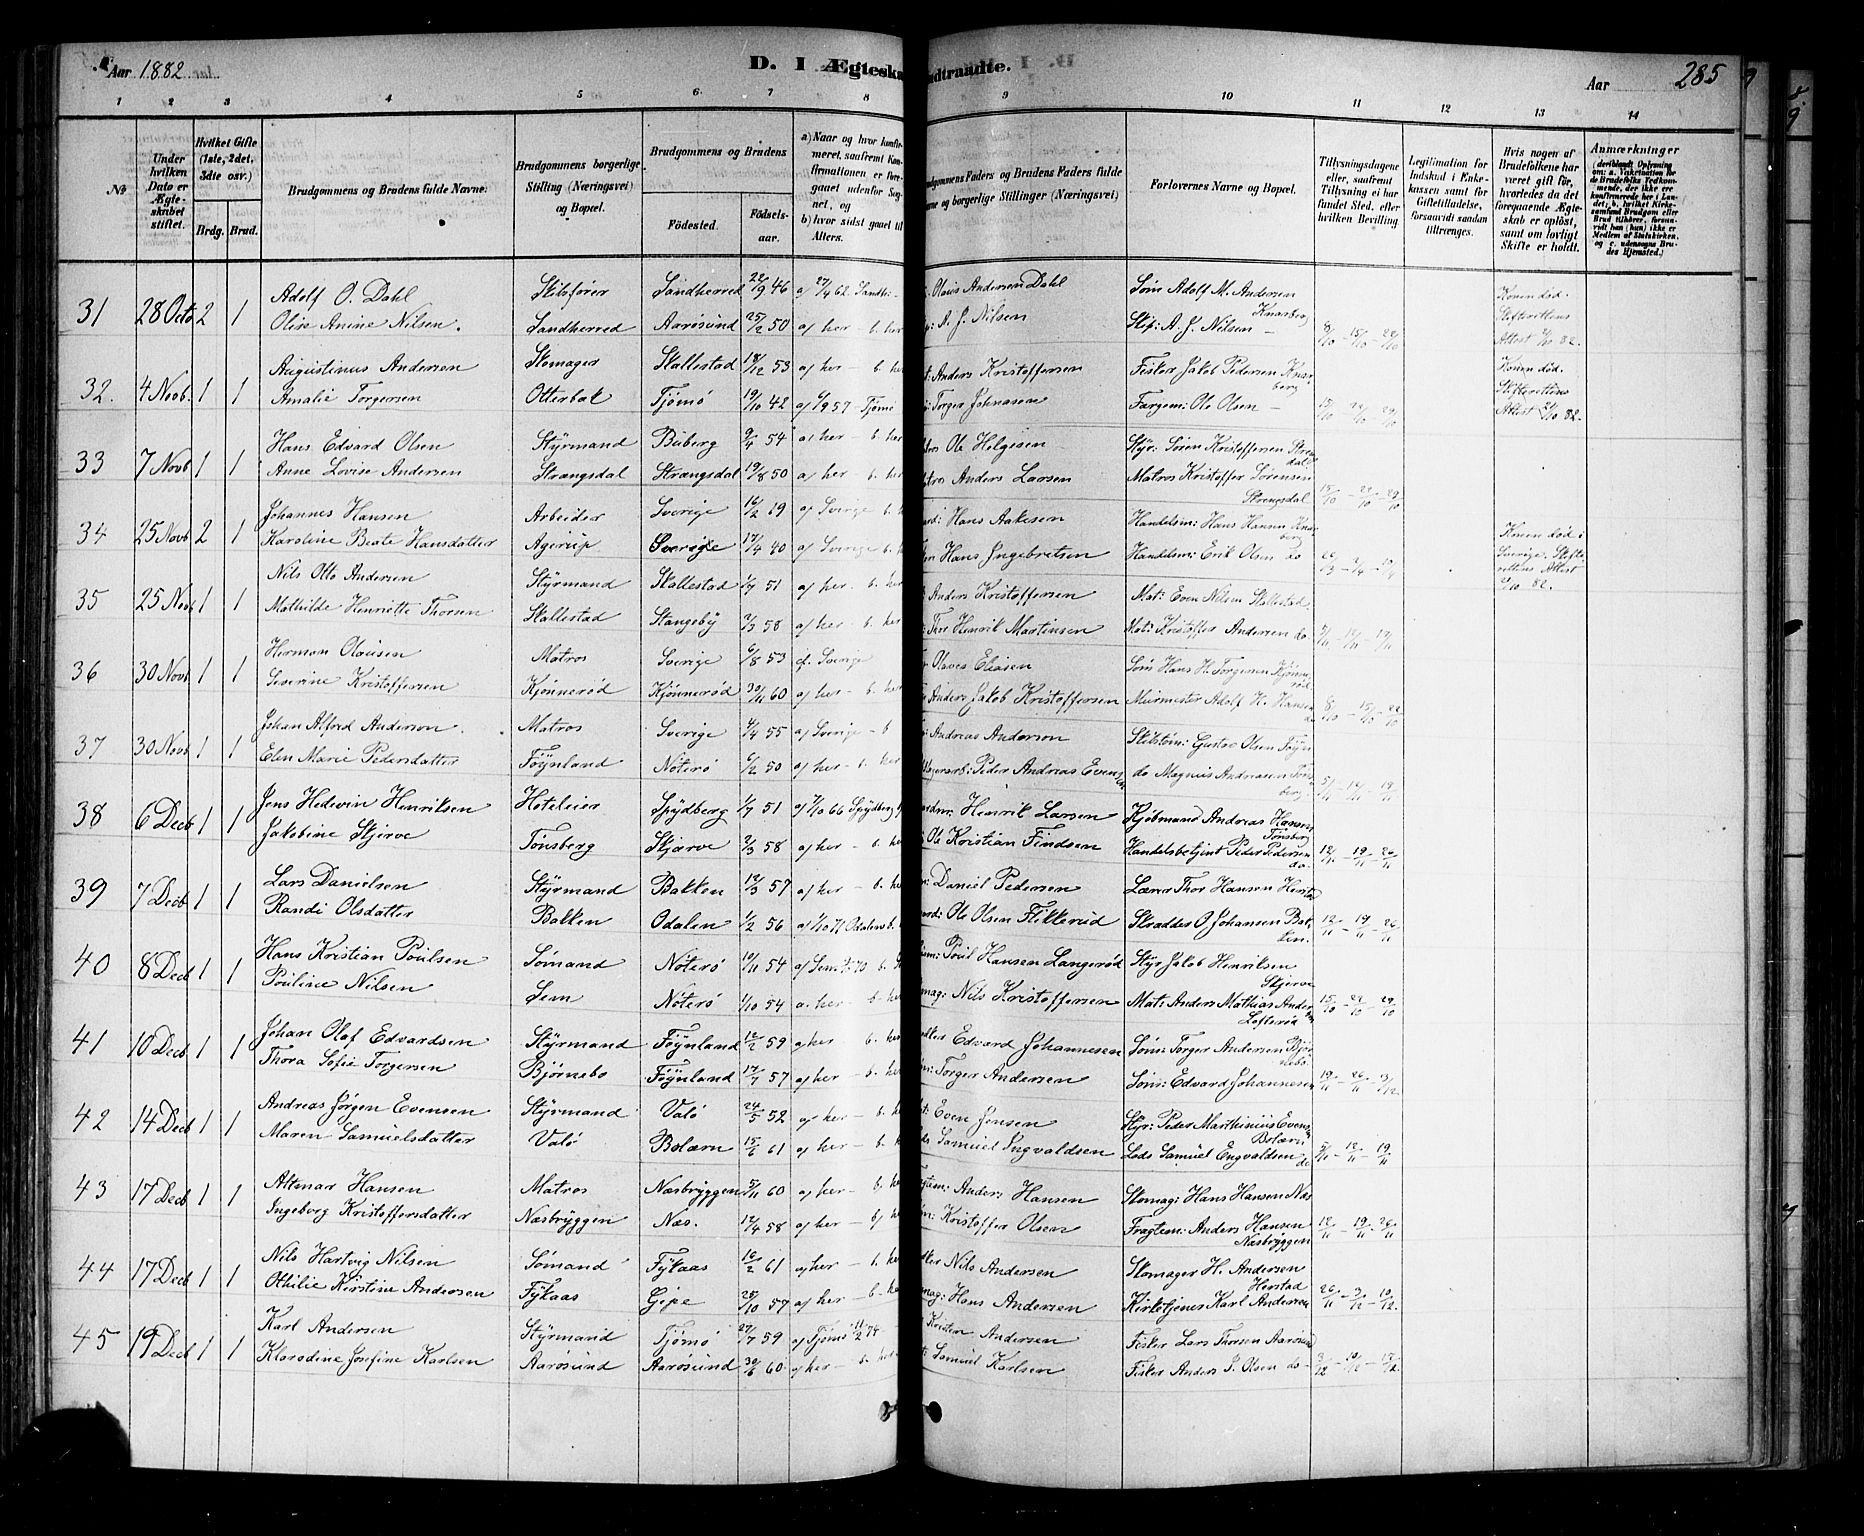 Aar 1882
D. I Ægteska
udtraadte.
Aar
285
1 2 3 4 5 6 7 8 9 10 11 12 13 14
No
Under hvilken Dato er Ægteskabet stiftet.
Hvilket Gifte (1ste, 2det, 3dte osv.)
Brdg. Brud.
Brudgommens og Brudens fulde Navne.
Brudgommens borgerlige Stilling (Næringsvei) og Bopæl.
Brudgommens og Brudens
Födested.
Födselsaar.
a) Naar og hvor konfirmeret, saafremt Konfirmationen er foregaaet udenfor Sognet, og
b) hvor sidst gaaet til Alters.
udgommens Faders og Brudens Faders fulde
vne og borgerlige Stillinger (Næringsvei)
Forlovernes Navne og Bopæl.
Tillysningsdagene eller, saafremt Tillysning ei har fundet Sted, efter hvilken Bevilling
Legitimation for Indskud i Enkekassen samt for Giftetilladelse, forsaavidt saadan tiltrænges.
Hvis nogen af Brudefolkene har været gift før, hvorledes da det foregaaende Ægteskab er opløst, samt om lovligt Skifte er holdt.
Anmærkninger
31 28 Octo 2 1 Adolf O. Dahl Skibsfører Sandherred 22/9 46 a/ 27/9 62 Sandhe- Olaus Andersen Dahl Søm Adolf M. Andersen Knarberg Konen død.
Olise Anine Nilsen. Sandherred Aarøsund 25/2 50 a/ her - b. her A. J. Nilsen Skip: A. J. Nilsen - 8/10 - 15/10 - 22/10 Skifterettens Attest 82.
32. 4 Novb. 1 1 Augustinus Andersen Skomager Skallestad 18/12 53 a/ her - b. her Anders Kristoffersen Fisker Jakob Pedersen Knarberg Konen død.
Amalie Torgersen Otterbæk Tjømø 19/10 42 57 Tjømø Torger Johnasen Fargem: Ole Olsen - 15/10 - 22/10 - 29/10 Skifterettens Attest 82.
33 7 Novb 1 1 Hans Edvard Olsen Styrmand Buberg 9/4 54 a/ her - b. her Ole Helgesen Styr: Søren Kristoffersen Strengsdal
Anne Lovise Andersen Strængsdal Strængsdal 19/8 50 a/ her - b. her Anders Larsen Matros Kristoffer Sørensen Strengsdal 15/10 - 22/10 - 29/10
34 25 Novb 2 1 Johannes Hansen Arbeider Sverige 16/2 19 a/ Sverige b. her Hans Aakesen Handelsm: Hans Hansen Knarberg Konen død i
Karoline Beate Hansdatter Agerup Sverige 17/4 40 a/ Sverige b. her Hans Ingebretsen Handelsm: Erik Olsen do Sverige. Skifterettens Attest 82.
35 25 Novb 1 1 Nils Otto Andersen Styrmand Skallestad 1/7 51 a/ her - b. her Anders Kristoffersen Mat: Even Nilsen Skallestad
Mathilde Henriette Thorsen Skallestad Stangeby 58 a/ her - b. her Thor Henrik Martinsen Mat: Kristoffer Andersen do 5/11 - 12/11 - 19/11
36 30 Novb 1 1 Herman Olausen Matros Sverige 6/8 53 a/. Sverige Olaves Eliasen Søm Hans H. Torgersen Kjønnerød
Severine Kristoffersen Kjønnerød Kjønnerød 30/11 60 a/ her - b. her Anders Jakob Kristoffersen Murmester Adolf H. Hansen 8/10 - 15/10 - 22/10
37 30 Novb 1 1 Johan Alfred Anderson. Matros Sverige 4/4 55 a/ Sverige - b Andreas Anderson Skibstøm: Gustav Olsen Føyn
Elen Marie Pedersdatter Føynland Nøterø 6/2 50 a/ her - b. her Peder Andreas Evensen do Magnus Andreasen Tønsberg 5/11 - 12/11 - 19/11
38 6 Decb 1 1 Jens Hedevin Henriksen Hoteleier Spydberg 1/7 51 a/ 7/10 66 Spydberg Henrik Larsen Kjøbmand Andreas Hansen Tønsberg
Jakobine Skjerve Tønsberg Skjærve 2/3 58 a/ her - b. her Ole Kristian Findsen Handelsbetjent Peder Pedersen do 12/11 - 19/11 - 26/11
39 7 Decb 1 1 Lars Danielsen Styrmand Bakken 12/3 57 a/ her - b. her Daniel Pedersen Lærer Thor Hansen Herstad
Randi Olsdatter Bakken Odalen 1/2 56 a/ 1/10 71 Odalen b. Ole Olsen Flikkerud Skrædder O Johansen Bakken. 12/11 - 19/11 - 26/11
40 8 Decb 1 1 Hans Kristian Poulsen Sømand Nøterø 10/11 54 a/ Sem 70 b. Poul Hansen Langerød Styr Jakob Henriksen Skjerve
Pouline Nilsen Sem Nøterø 1/10 54 a. her - b. her Nils Kristoffersen Mat: Anders Mathias Andersen Lofterød 15/10 - 22/10 - 29/10
41 10 Decb 1 1 Johan Olaf Edvardsen Styrmand Føynland 12/2 59 a/ her - b. her Edvard Johannesen Søm: Torger Andersen Bjørnebo.
Thora Sofie Torgersen Bjørnebo Føynland 17/7 57 a/ her - b. her Torger Andersen Søm: Edvard Johannesen 19/11 - 26/11 - 3/12
42 14 Decb 1 1 Andreas Jørgen Evensen Styrmand Valø 24/5 52 a/ her - b. her Even Jensen Styr: Peder Marthinius Evensen Bolærn
Maren Samuelsdatter Valø Bolærn 15/6 61 a/ her - b. her Samuel Ingvaldsen Lods Samuel Engvaldsen do 5/11 - 12/11 - 19/11
43 17 Decb 1 1 Altmar Hansen Matros Næsbryggen 5/11 60 a/ her - b. her Anders Hansen Skomag: Hans Hansen Næs
Ingeborg Kristoffersdatter Næsbryggen Næs. 17/4 58 a/ her - b/ her Kristoffer Olsen Fragtem: Anders Hansen Næsbryggen 12/11 - 19/11 - 26/11
44 17 Decb 1 1 Nils Hartvig Nilsen Sømand Fykaas 16/2 61 a/ her - b. her Nils Andersen Skomager H. Andersen Herstad
Othilie Kirstine Andersen Fykaas Gipe 25/10 57 a/ her - b. her Hans Andersen Kirketjener Karl Andersen 26/11 - 3/12 - 10/12.
45 19 Decb 1 1 Karl Andersen Styrmand Tjømø 27/7 59 a/ Tjømø 74 - Kristen Andersen Fisker Lars Thorsen Aarøsund
Klaradine Josefine Karlsen Aarøsund Aarøsund 30/6 60 a/ her - b. her Samuel Karlsen Fisker Anders S. Olsen do - 3/12 - 10/12 - 17/12.